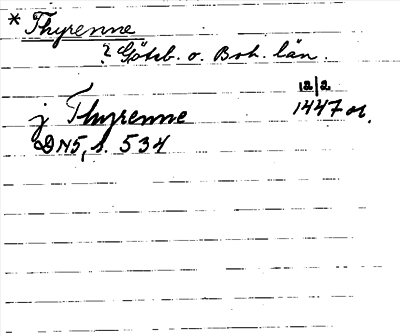 * Thyrenne
? Göteb. o. Boh. län.
12/2
j Thyrenne 1447 or.
DN5, s. 534